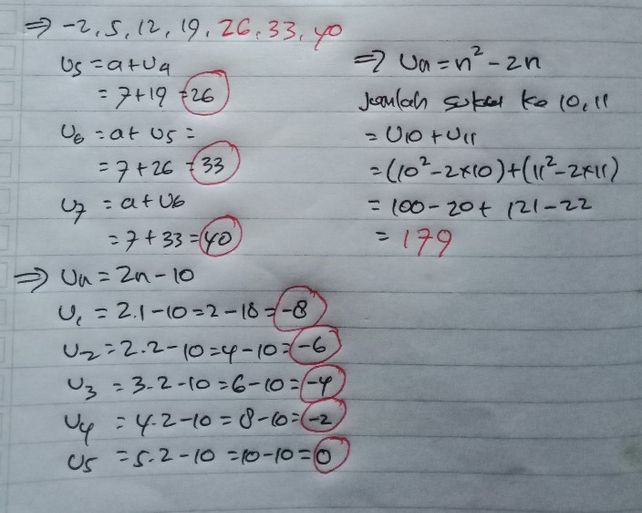 ⇒ -2, 5, 12, 19, 26, 33, 40
U5 = a + U4
= 7 + 19 = 26
U6 = a + U5 =
= 7 + 26 = 33
U7 = a + U6
= 7 + 33 = 40
⇒ Un = 2n - 10
U1 = 2.1 - 10 = 2 - 10 = -8
U2 = 2.2 - 10 = 4 - 10 = -6
U3 = 3.2 - 10 = 6 - 10 = -4
U4 = 4.2 - 10 = 8 - 10 = -2
U5 = 5.2 - 10 = 10 - 10 = 0
⇒ Un = n² - 2n
Jumlah suku ke 10, 11
= U10 + U11
= (10² - 2×10) + (11² - 2×11)
= 100 - 20 + 121 - 22
= 179